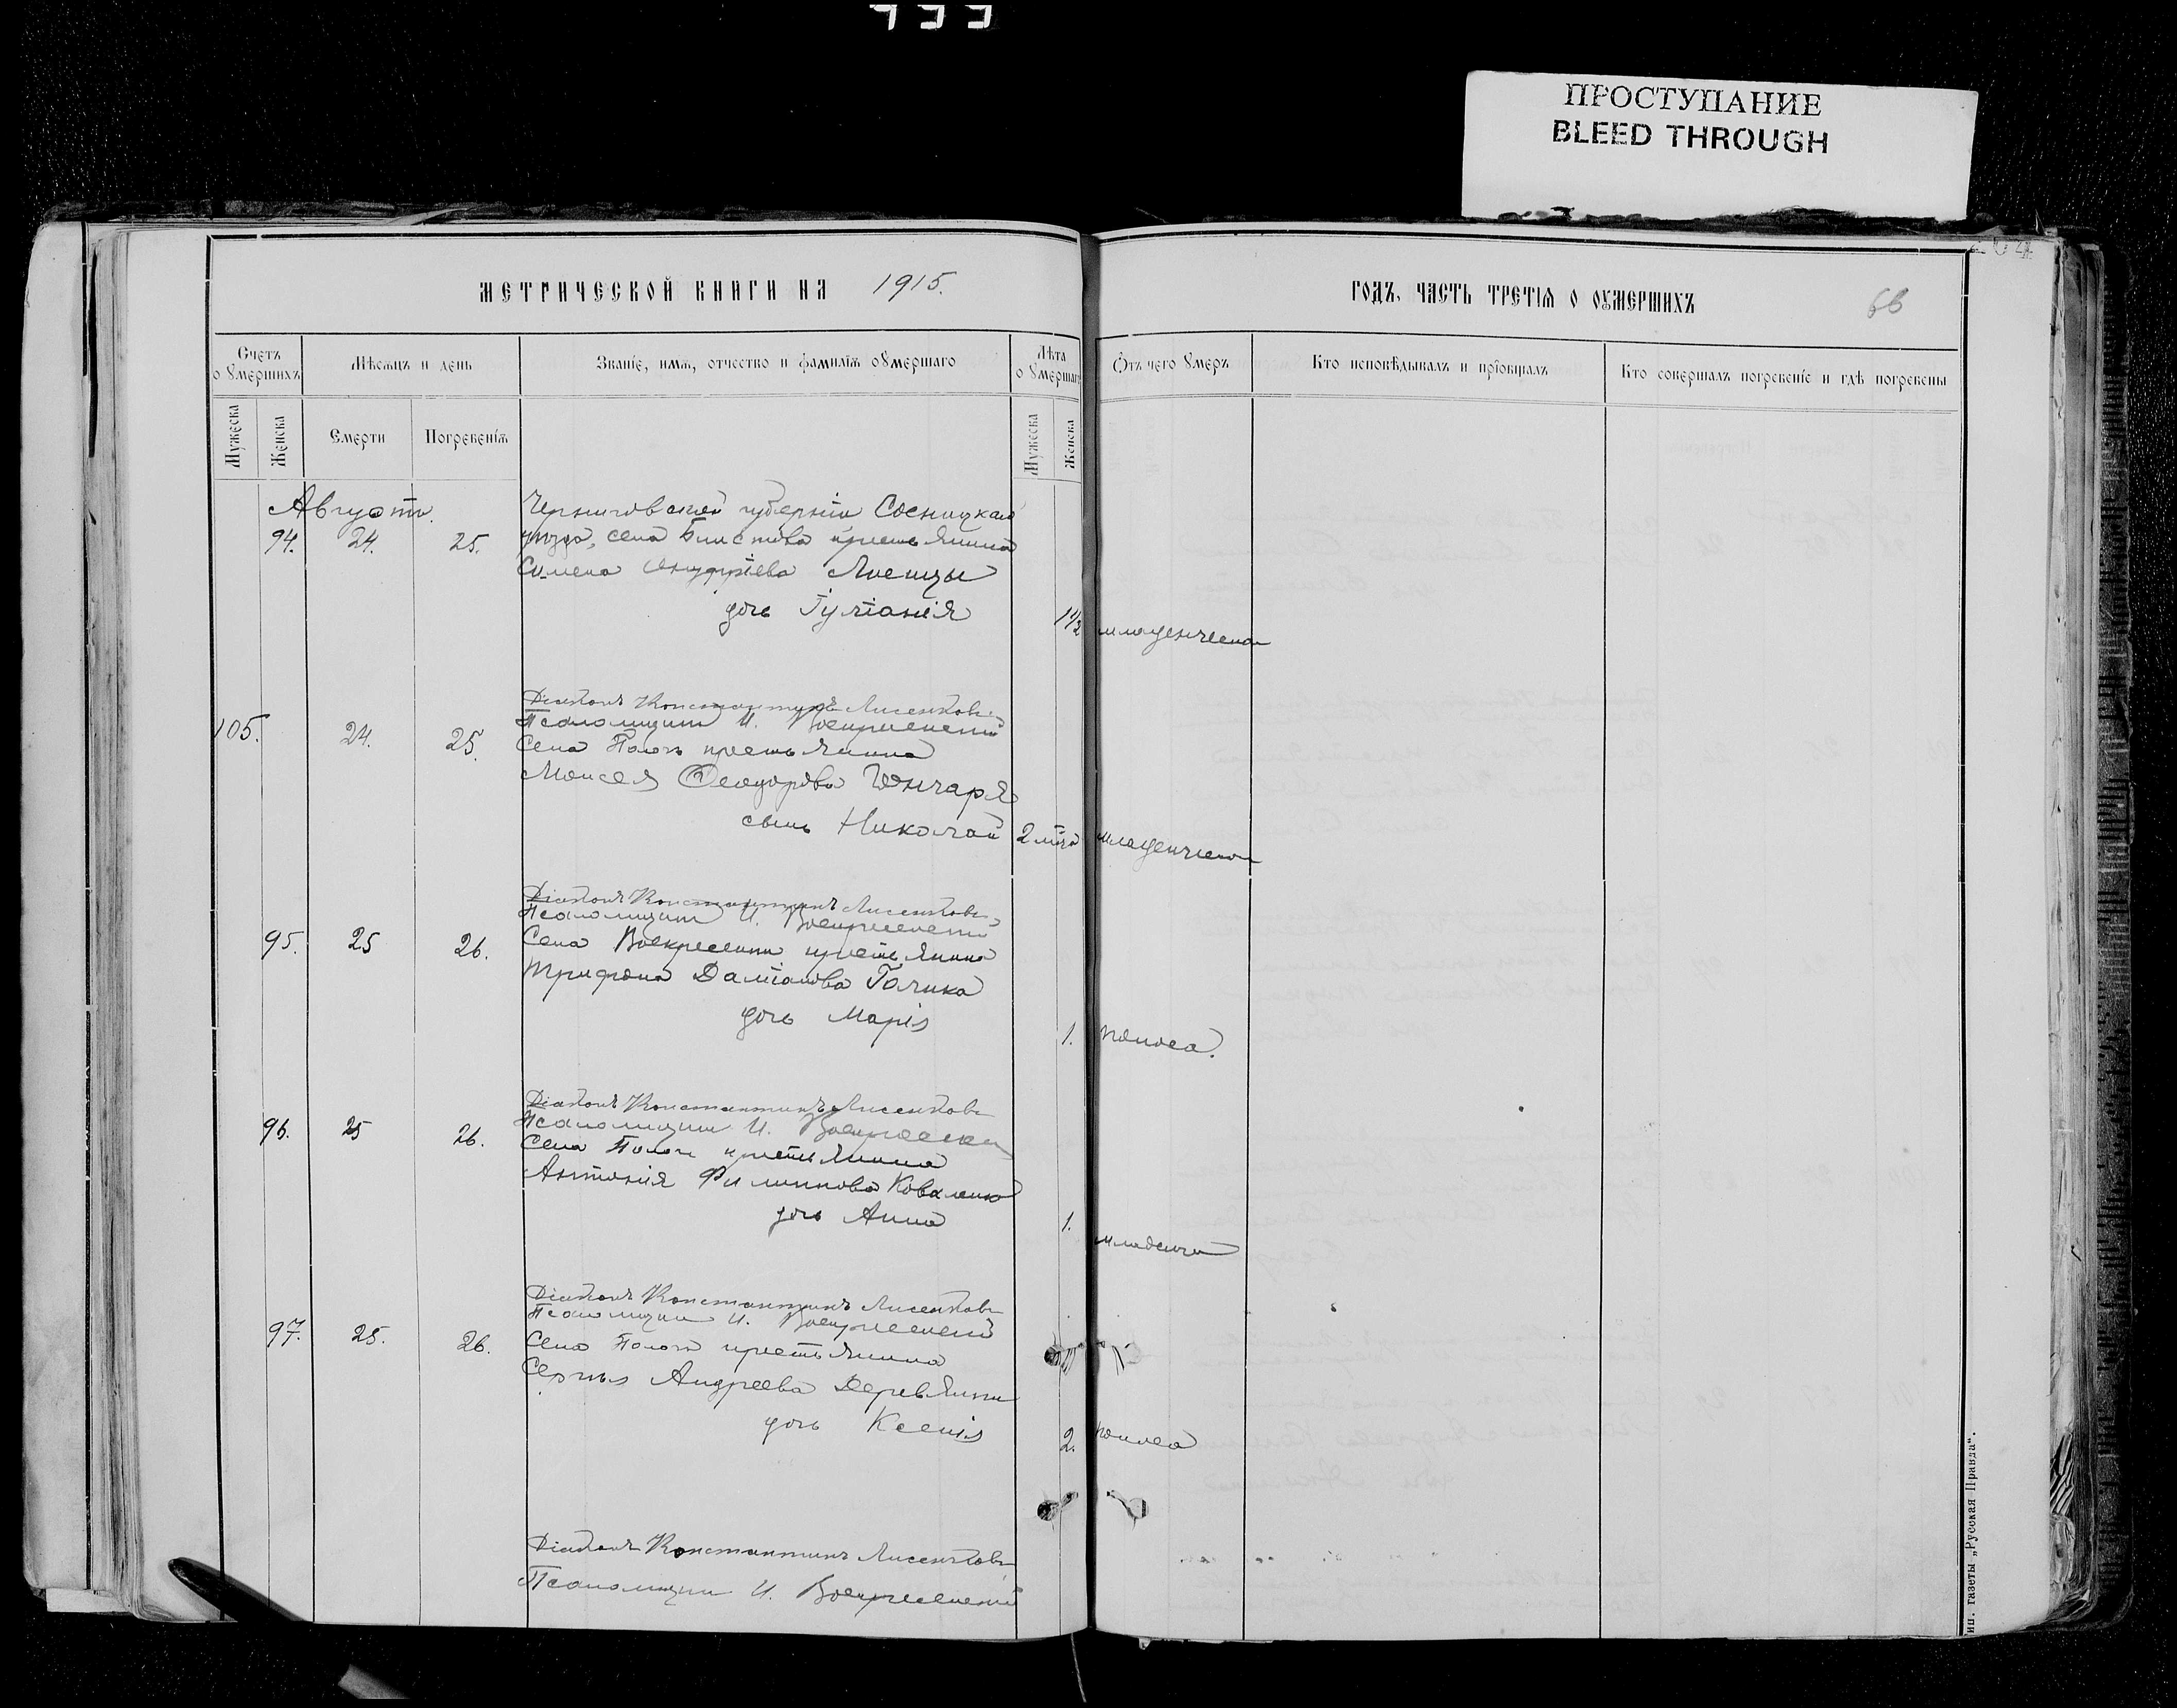 ПРОСТУПАНИЕ
BLEED THROUGH
МЕТРИЧЕСКОЙ КНИГИ НА 1915.
ГОДЪ, ЧАСТЬ ТРЕТІѦ О ОУМЕРШИХЪ
66
Счетъ оумершихъ
Мѣсѧцъ и день
Званіе, имѧ, отчество и фамиліѧ оумершаго
Лѣта оумершаго
Отъ чего умеръ
Кто исповѣдывалъ и пріобщалъ
Кто совершалъ погребеніе и гдѣ погребены
Мужеска
Женска
Смерти
Погребеніѧ
Мужеска
Женска
Августъ.
Черниговской губерніи Сосницкаго
94. 24. 25. уѣзда, села крестьянина
Семена
дочь Іуліанія 1 1/2 младенческой
Діаконъ Константинъ Лисенковъ
Псаломщикъ И. Воскресенскій
105. 24. 25. Села Пологъ крестьянина
Моисея Ѳеодорова Гончаря
сынъ Николай 2 младенческой
Діаконъ Константинъ Лисенковъ
Псаломщикъ И. Воскресенскій
95. 25 26. Села крестьянина
Трифона Даміанова Голика
дочь Марія 1. поноса.
Діаконъ Константинъ Лисенковъ
Псаломщикъ И. Воскресенскій
96. 25 26. Села Пологъ крестьянина
Антонія Филиппова Коваленко
дочь Анна 1. младенч
Діаконъ Константинъ Лисенковъ
Псаломщикъ И. Воскресенскій
97. 25. 26. Села Пологъ крестьянина
Сергѣя Андреева
дочь Ксенія 2. поноса
Діаконъ Константинъ Лисенковъ
Псаломщикъ И. Воскресенскій
газеты „Русская Правда“.